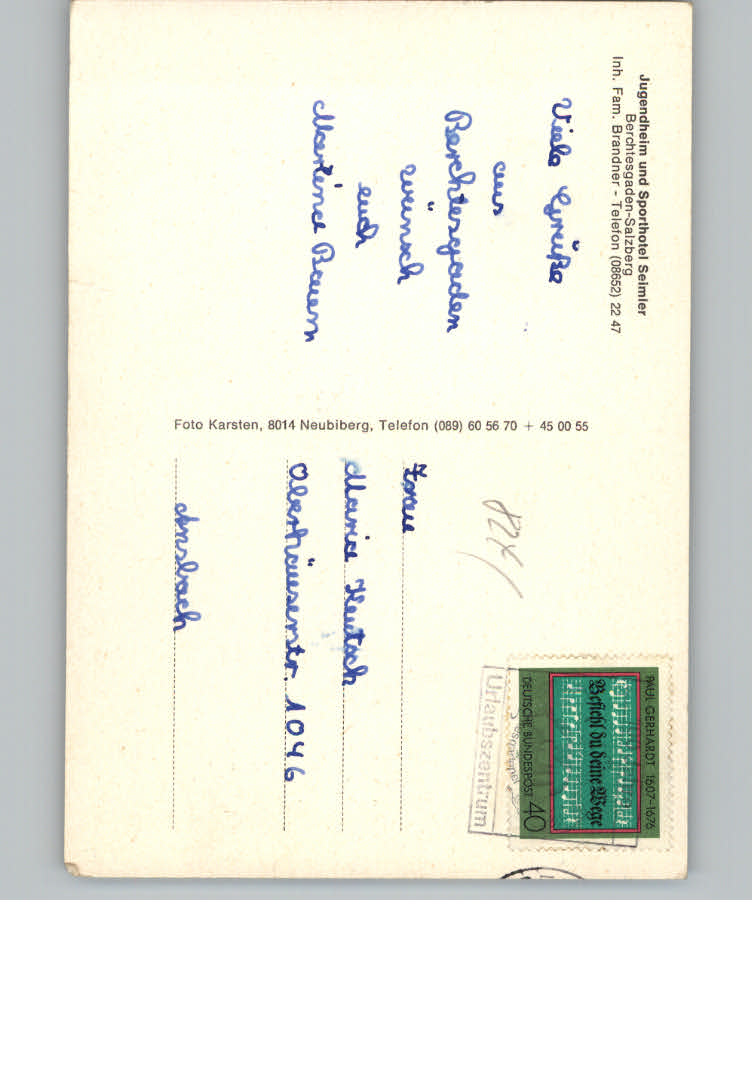 Jugendheim und Sporthotel Seimler
Berchtesgaden-Salzberg
Inh. Fam. Brandner - Telefon (08652) 22 47
Viele Grüße
aus
Berchtesgaden
wünsch
euch
Martina Bauern
Foto Karsten, 8014 Neubiberg, Telefon (089) 60 56 70 + 45 00 55
82X/
Frau
Maria Keutsch
Oberhäuserstr. 1046
Ansbach
PAUL GERHARDT 1607-1676
Befiehl du deine Wege
DEUTSCHE BUNDESPOST 40
Urlaubszentrum